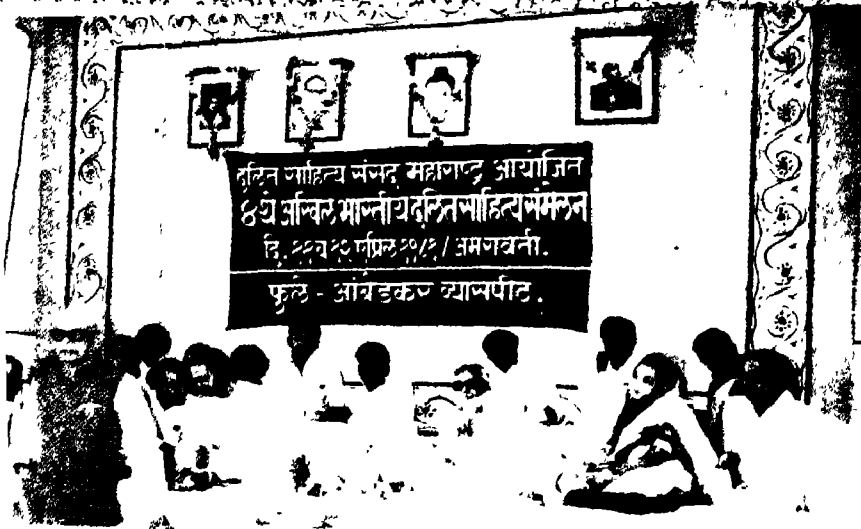 दलित साहित्य संसद महाराष्ट्र आयोजित
४थे अखिल भारतीय दलित साहित्य संमेलन
दि. एप्रिल / अमरावती.
फुले - आंबेडकर व्यासपीठ.